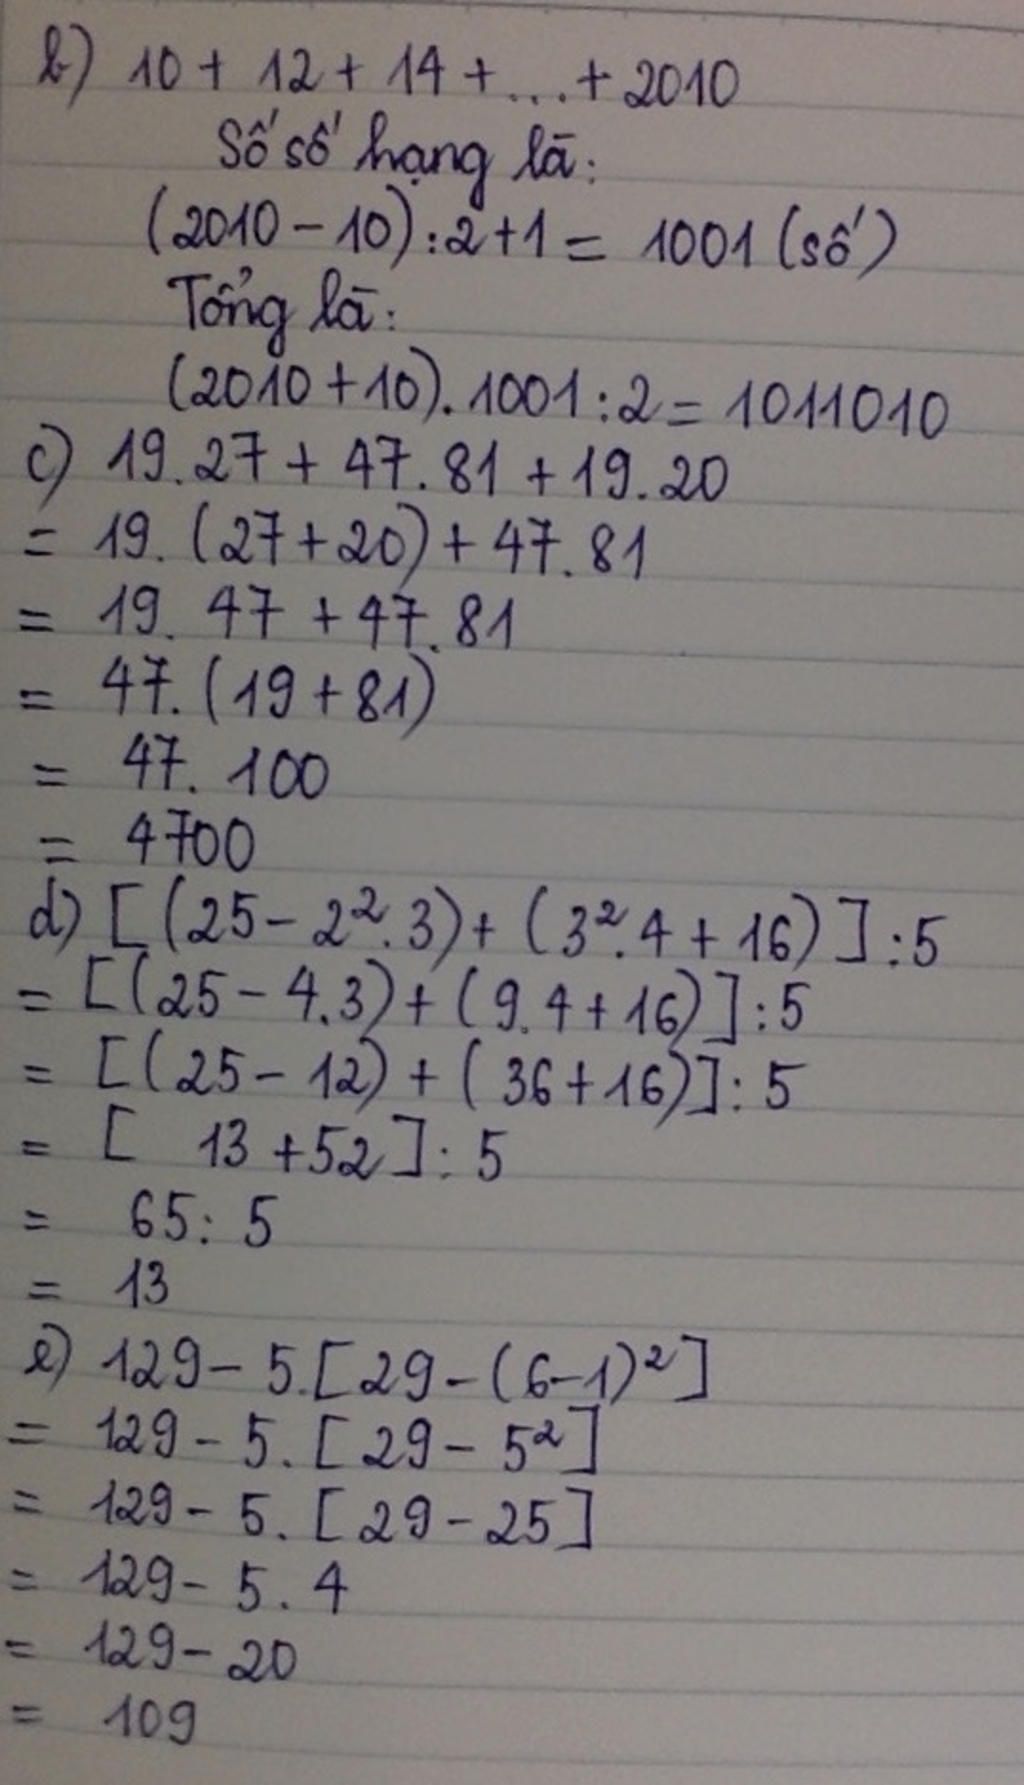 b) 10 + 12 + 14 + ... + 2010
Số số hạng là:
(2010 - 10) : 2 + 1 = 1001 (số)
Tổng là:
(2010 + 10) . 1001 : 2 = 1011010
c) 19 . 27 + 47 . 81 + 19 . 20
= 19 . (27 + 20) + 47 . 81
= 19 . 47 + 47 . 81
= 47 . (19 + 81)
= 47 . 100
= 4700
d) [ (25 - 2² . 3) + (3² . 4 + 16) ] : 5
= [ (25 - 4 . 3) + (9 . 4 + 16) ] : 5
= [ (25 - 12) + (36 + 16) ] : 5
= [ 13 + 52 ] : 5
= 65 : 5
= 13
e) 129 - 5 . [ 29 - (6 - 1)² ]
= 129 - 5 . [ 29 - 5² ]
= 129 - 5 . [ 29 - 25 ]
= 129 - 5 . 4
= 129 - 20
= 109